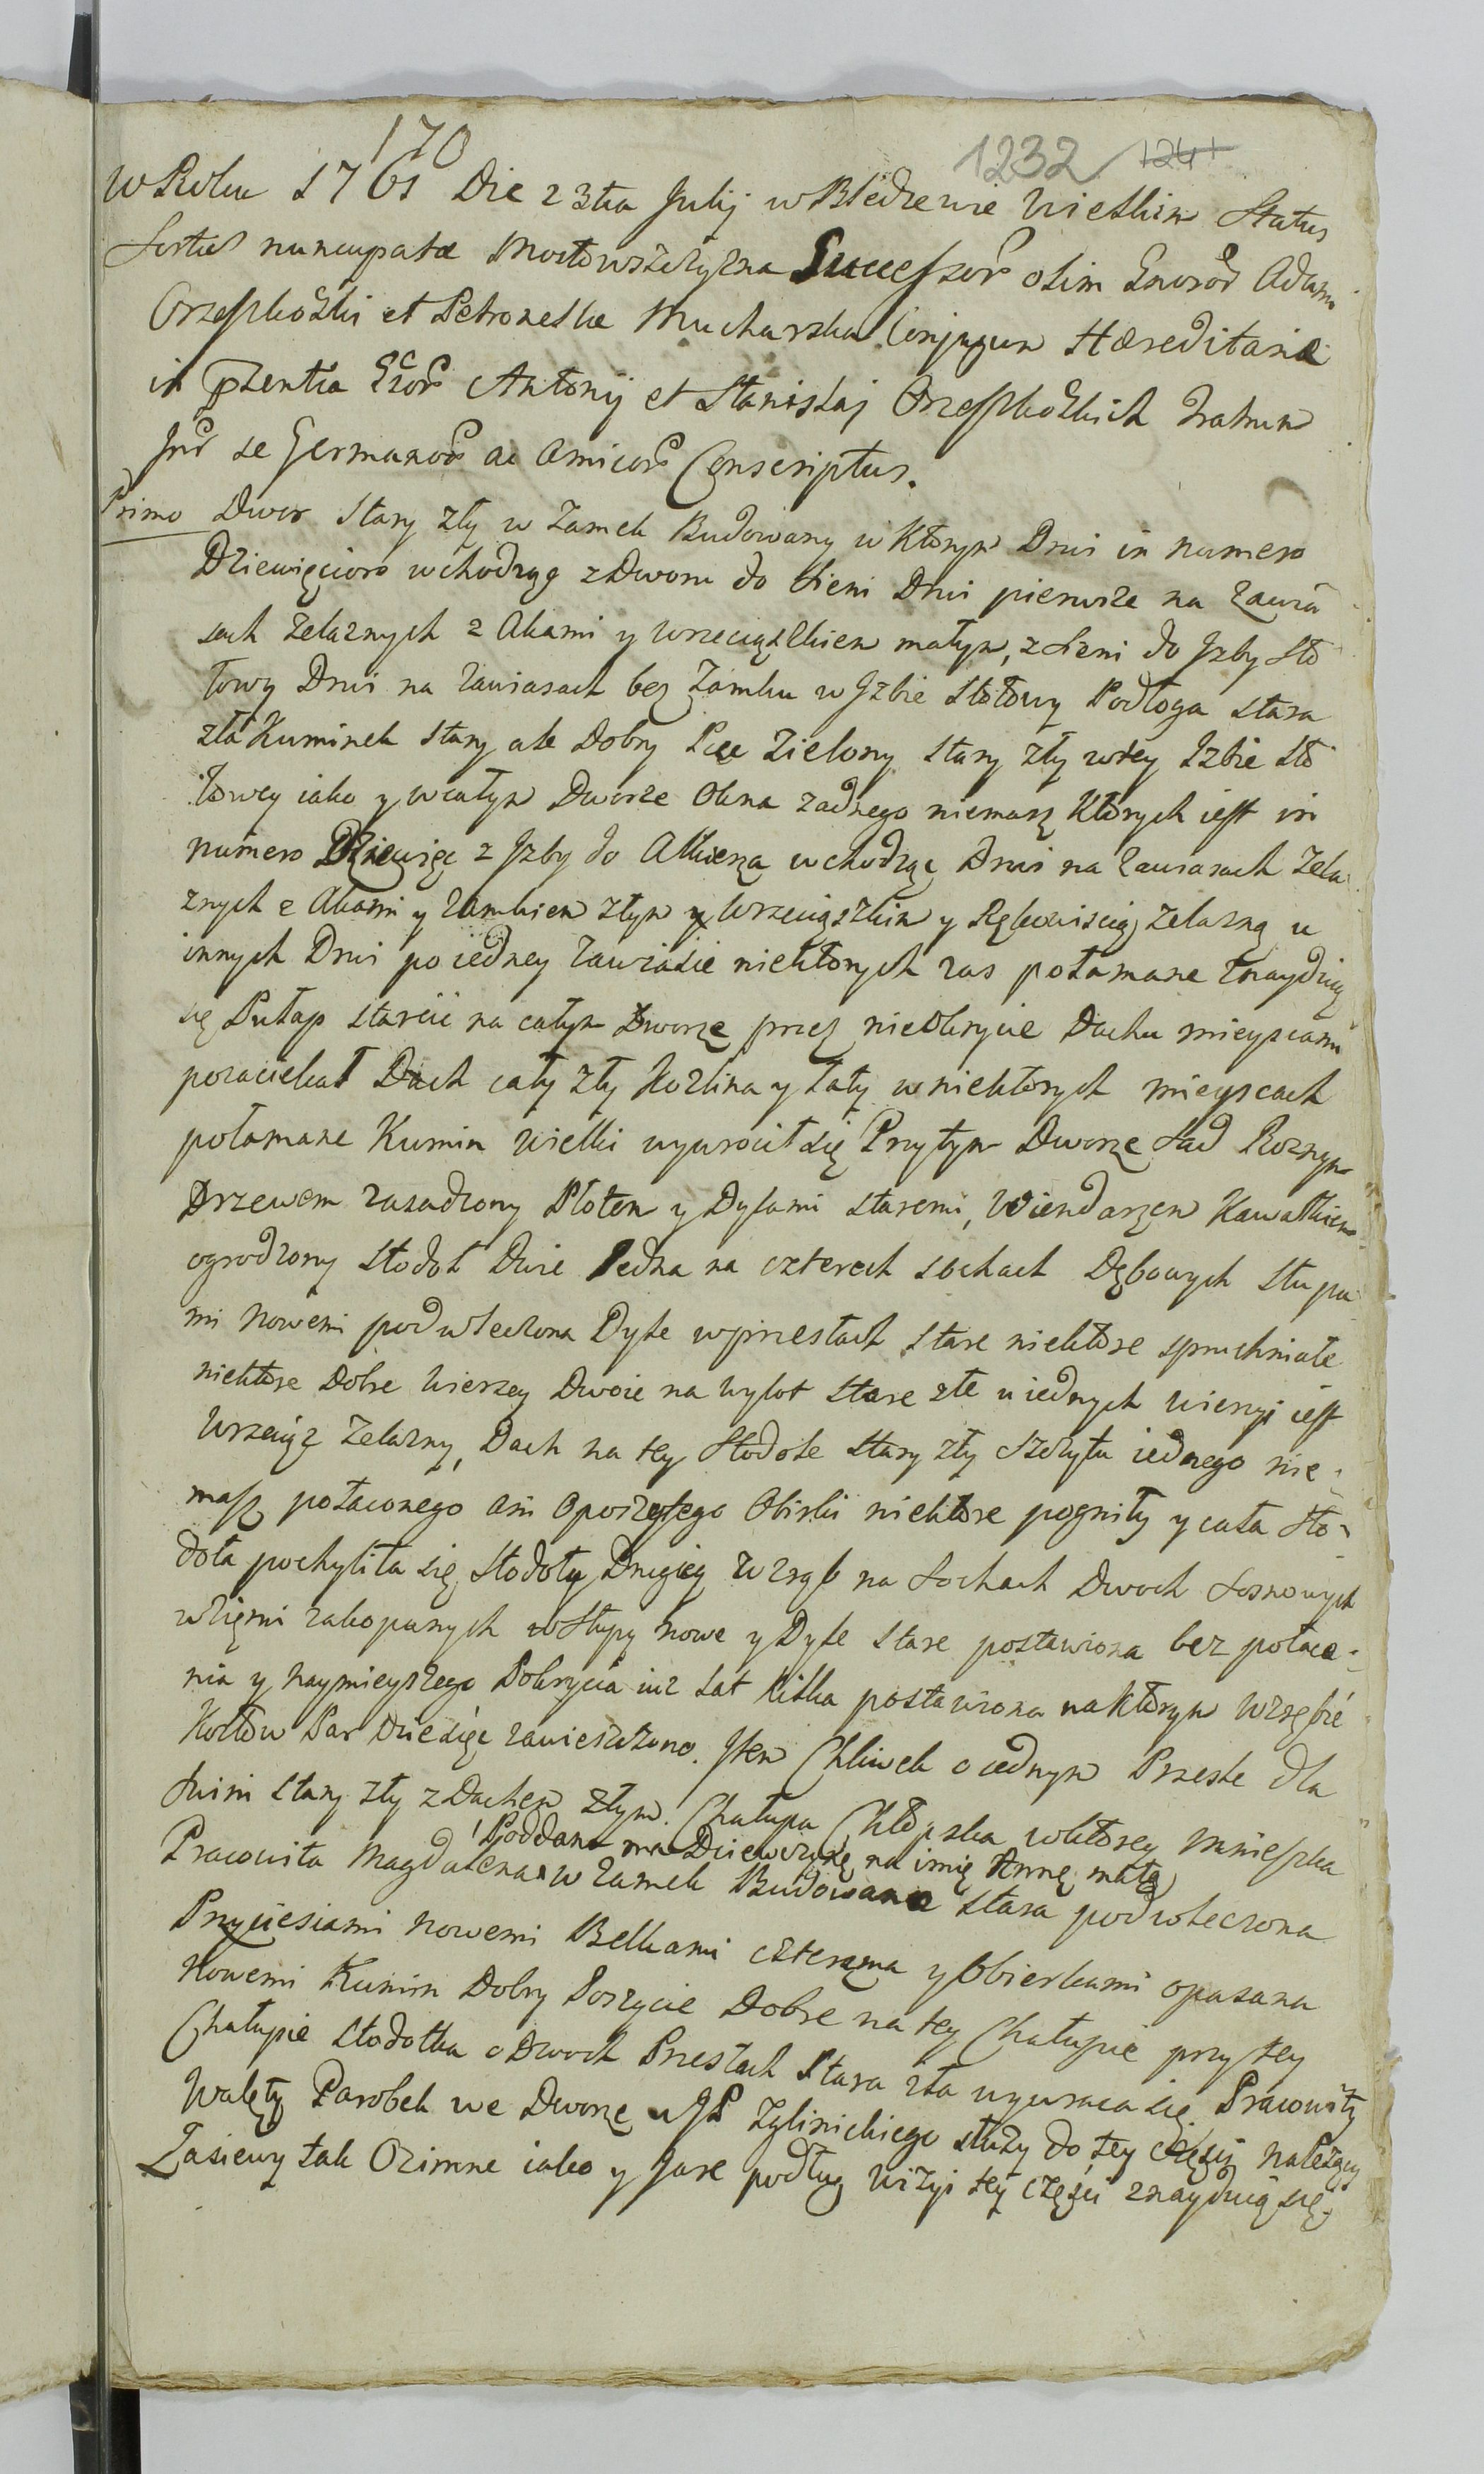 170
1232 1241
w Roku 1761 Die 23tia Julij w Błędzewie Wielkim Status
Sortis nuncupatæ Mostowszczyzna Successor olim Gnoror Adami
Orzeszkoski et Petronellæ Mucharska Conjugum Hæreditariæ
in Pzentia Gror Antonij et Stanislaj Orzeszkoskich Fratrum
Inr se Germanor ac Amicor Conscriptus.
Primo Dwor stary zły w Zamek Budowany w Ktorym Drzwi in numero
Dziewięcioro wchodząc z Dworu do Sieni Drzwi pierwsze na Zawia
sach Zelaznych z Akami y Wrzeciąszkiem małym, z Sieni do Jzby Sto
łowy Drzwi na Zawiasach bez Zamku w Jzbie Stołowy Podłoga stara
zła Kuminek stary ale Dobry Piec Zielony stary zły w tey Izbie Sto
łowey iako y w całym Dworze Okna zadnego niemasz Ktorych iest in
numero Dziewięc z Jzby do Alkierza wchodząc Drzwi na Zawiasach Zela
znych z Akami y Zamkiem złym y Wrzeciąszkim y Rękowiscią zelazną u
innych Drzwi po iedney Zawiasie niektorych zas połamane znayduią
się Pułap starcic na całym Dworze przez nieokrycie Dachu mieyscami
pozaciekał Dach cały zły Kozlina y Łaty w niektorych mieyscach
połamane Kumin wielki wywrocił się Przytym Dworze Sad Roznym
Drzewem zasadzony Płotem y Dylami staremi, Wiendarzem Kawałkiem
ogrodzony Stodoł Dwie Jedna na czterech sochach Dębowych słupa
mi nowemi podwleczona Dyle w przesłach stare niektore spruchniałe
niektore Dobre Wierzey Dwoie na wylot stare złe u iednych wierzyi iest
Wrzeciąz Zelazny, Dach na tey Stodole stary zły Szczytu iednego nie
masz połaconego ani oposzytego Obiski niektore pogniły y cała Sto-
doła pochyliła się Stodoły Drugiey Wząb na Sochach Dwoch Sosnowych
w ziemi zakopanych w Słupy nowe y Dyle stare postawiona bez połace-
nia y naymieyszego Pokrycia iuz Lat Kilka postawiona na ktorym Wzębie
Kozłow Par Dziesięc zawieszono. Item Chliwek o iednym Przesle dla
Swini stary zły z Dachem złym. Chałupa Chłopska w ktorey mnieszka
Poddana ma Dziewczynę na imię Annę małą
Pracowita Magdalena w Zamek Budowana stara podwleczona
Przyciesiami nowemi Belkami czterema y Obierkami opasana
Nowemi Kumin Dobry Poszycie Dobre na tey Chałupie przy tey
Chałupie Stodołka o Dwoch Przesłach Stara zła wywraca się. Pracowity
Walęty Parobek we Dworze u JP Zglinickiego słuzy do tey częsci nalezący
Zasiewy tak Ozimne iako y Jare podług Wizyi tey częsci znayduią się.